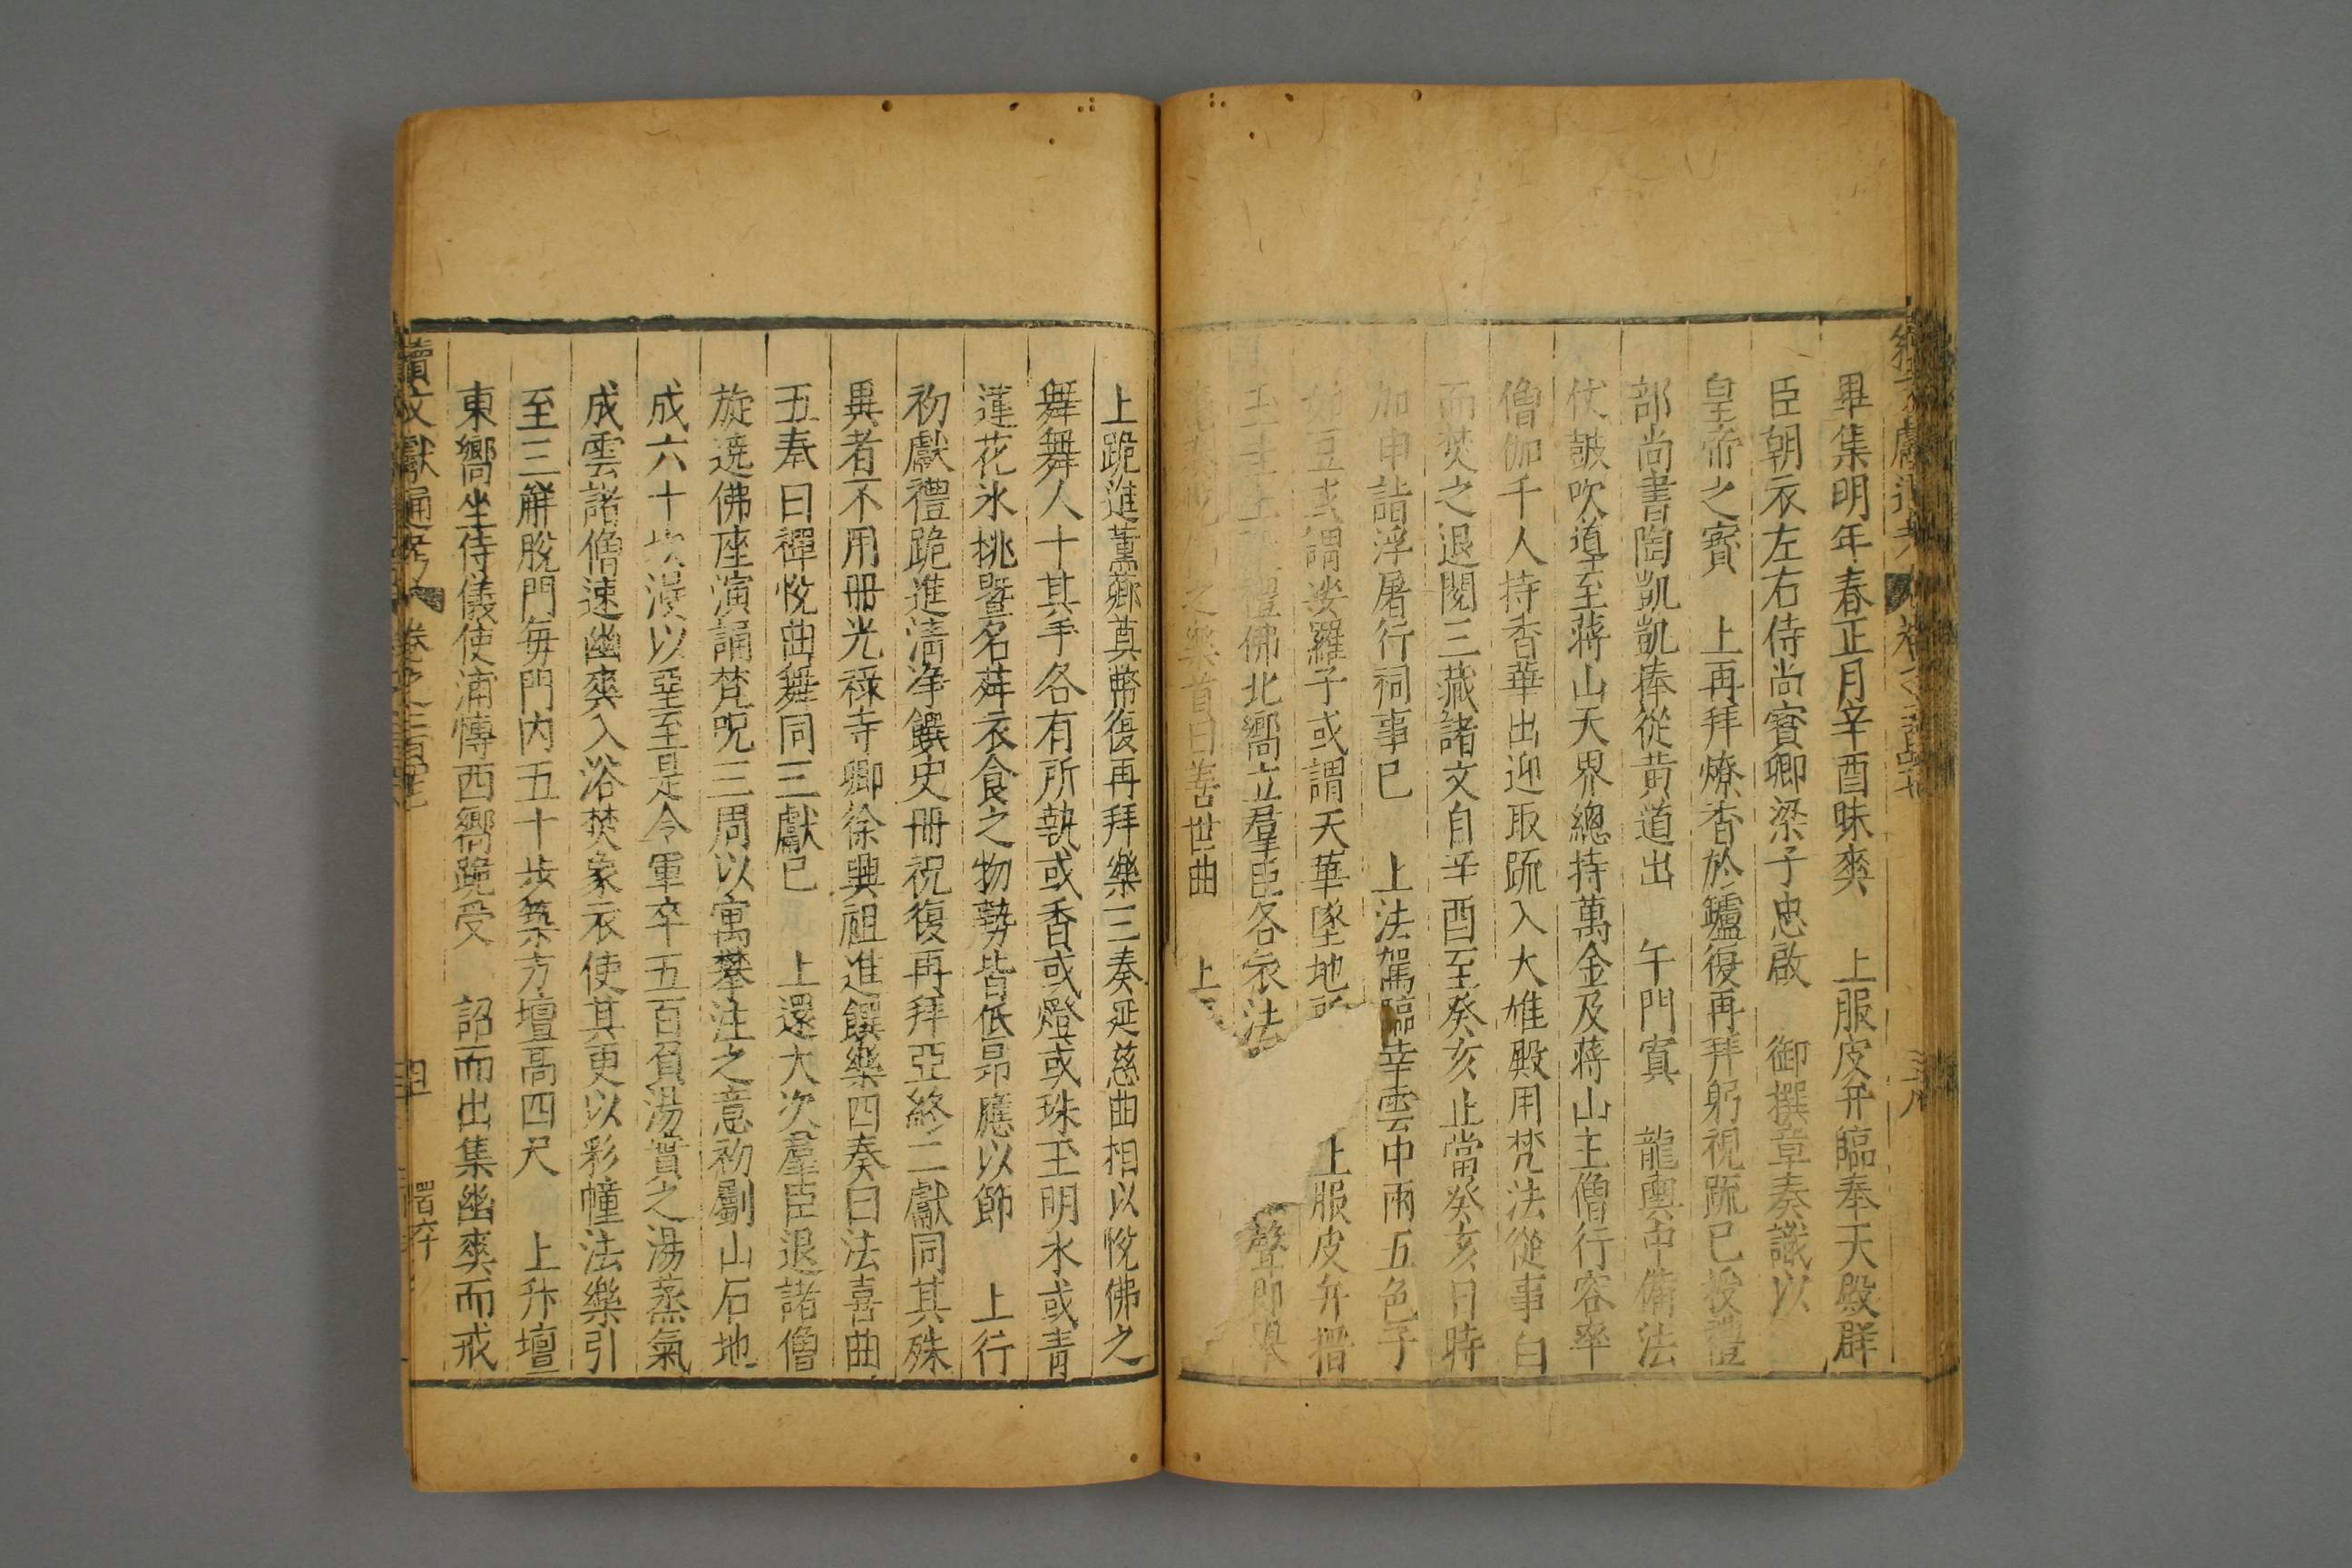 畢集明年春正月辛酉昧爽　上服皮弁臨奉天殿群
臣朝衣左右侍尚寳卿梁子忠啟　御撰章奏識以
皇帝之寳　上再拜燎香於鑪復再拜躬視䟽巳授禮
部尚書陶凱凱捧從黄道出　午門寘　龍輿中備法
仗皷吹導至蔣山天界總持萬金及蔣山主僧行容率
僧伽千人持香華出迎取䟽入大雄殿用梵法從事白
而焚之退閱三藏諸文自辛酉至癸亥止當癸亥日時
加申諸浮屠行祠事巳　上法駕臨幸雲中雨五色子
如豆或謂娑羅子或謂天華墜地所　上服皮弁搢
玉珪上殿禮佛北嚮立羣臣各衣法　聲即舉
之樂首曰善世曲　上
上跪進薰薌奠幣復再拜樂三奏延慈曲相以悅佛之
舞舞人十其手各有所執或香或燈或珠玉明水或青
蓮花氷桃暨名荈衣食之物勢皆低昂應以節　上行
初獻禮跪進清凈饌史冊祝復再拜亞終二獻同其殊
異者不用冊光祿寺卿徐興祖進饌樂四奏曰法喜曲
五奏曰禪悅曲舞同三獻巳　上還大次羣臣退諸僧
旋遶佛座演誦梵呪三周以寓攀注之意初劚山石地
成六十坎漫以堊至是令軍卒五百負湯實之湯蒸氣
成雲諸僧速幽爽入浴焚象衣使其更以彩幢法樂引
至三解脫門毎門内五十步築方壇高四尺　上升壇
東嚮坐侍儀使溥愽西嚮跪受　詔而出集幽爽而戒
續文獻通考　卷之二百四十　四十